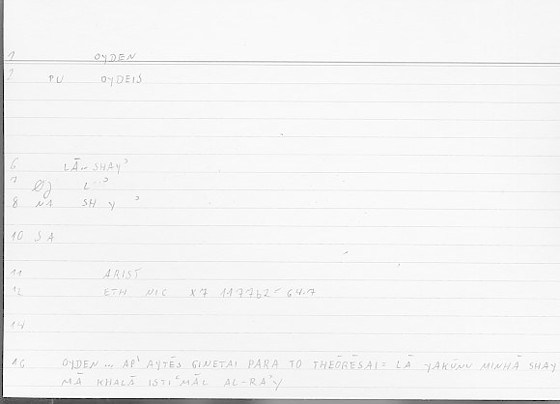 1 OYDEN
2 PU OYDEIS
6 LĀ-SHAYʾ
7 L ʾ
8 NA SH Y ʾ
10 SA
11 ARIST
12 ETH NIC X7 1177b2 = 64.7
14
16 OYDEN ... APʾ AYTĒS GINETAI PARA TO THEŌRĒSAI = LĀ YAKŪNU MINHĀ SHAY
MĀ KHALĀ ISTIʿMĀL AL-RAʾY